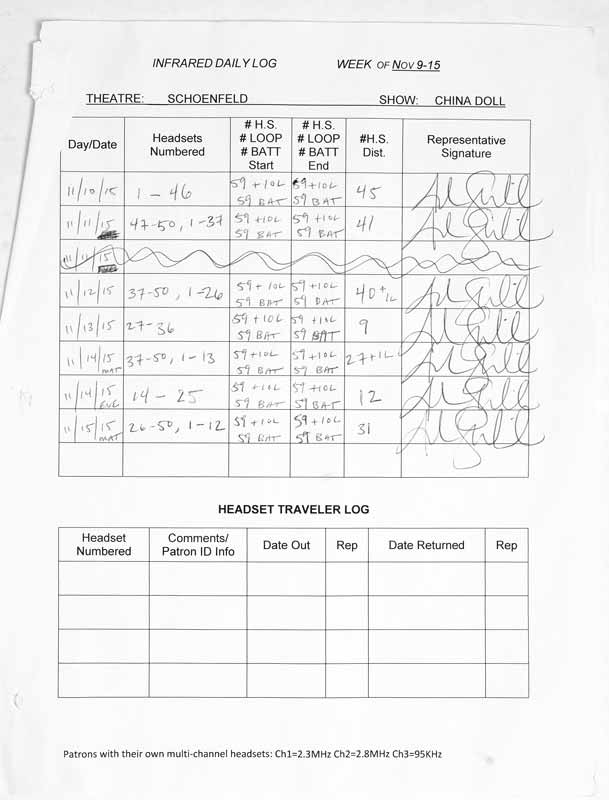 INFRARED DAILY LOG WEEK OF NOV 9-15
THEATRE: SCHOENFELD SHOW: CHINA DOLL
Day/Date
Headsets
Numbered
# H.S.
# LOOP
# BATT
Start
# H.S.
# LOOP
# BATT
End
#H.S.
Dist.
Representative
Signature
11/10/15 1 - 46 59 +10L 59 BAT 59 +10L 59 BAT 45
11/11/15 47-50, 1-37 59 +10L 59 BAT 59 +10L 59 BAT 41
11/11/15
11/12/15 37-50, 1-26 59 + 10L 59 BAT 59 +10L 59 BAT 40 +1L
11/13/15 27-36 59 +10L 59 BAT 59 +10L 59 BAT 9
11/14/15 MAT 37-50, 1-13 59 +10L 59 BAT 59 +10L 59 BAT 27+1L
11/14/15 EVE 14 - 25 59 +10L 59 BAT 59 +10L 59 BAT 12
11/15/15 MAT 26-50, 1-12 59 +10L 59 BAT 59 +10L 59 BAT 31
HEADSET TRAVELER LOG
Headset
Numbered
Comments/
Patron ID Info
Date Out
Rep
Date Returned
Rep
Patrons with their own multi-channel headsets: Ch1=2.3MHz Ch2=2.8MHz Ch3=95KHz